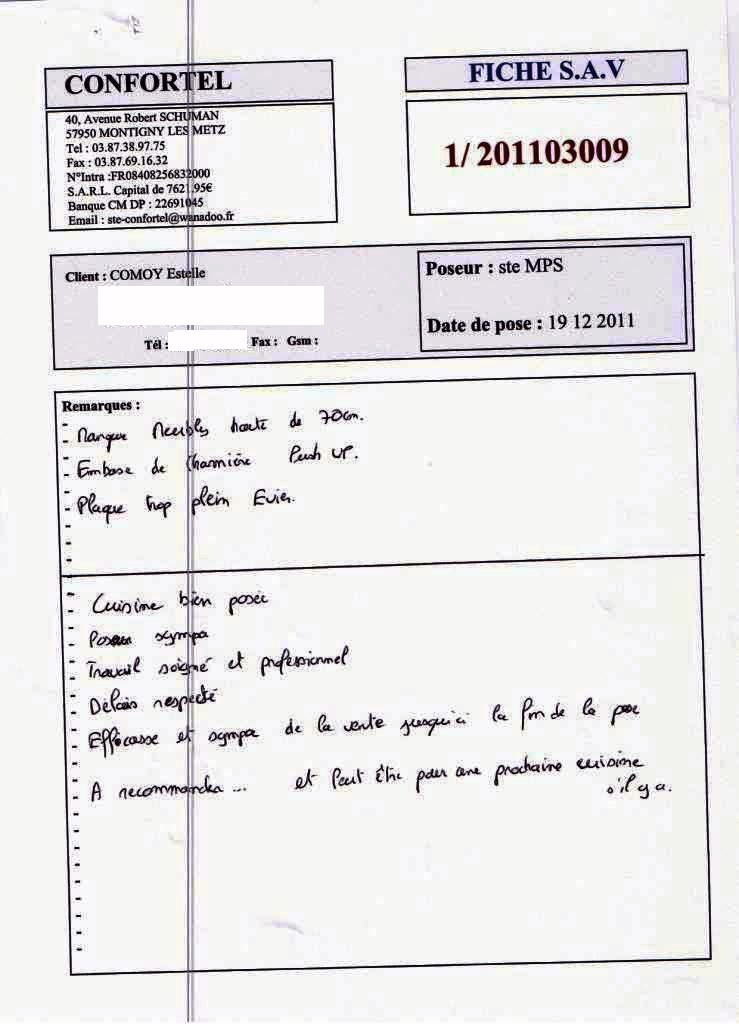 CONFORTEL
40, Avenue Robert SCHUMAN
57950 MONTIGNY LES METZ
Tel : 03.87.38.97.75
Fax : 03.87.69.16.32
N°Intra :FR08408256832000
S.A.R.L. Capital de 7621.95€
Banque CM DP : 22691045
Email : ste-confortel@wanadoo.fr
FICHE S.A.V
1/ 201103009
Client : COMOY Estelle
Tél : Fax : Gsm :
Poseur : ste MPS
Date de pose : 19 12 2011
Remarques :
- Manque Meubles haute de 70cm.
- Embase de charnière Push UP.
- Plaque trop plein Evier.
- Cuisine bien posée
- Poseur sympa
- Travail soigné et professionnel
- Délais respecté
- Efficasse et sympa de la vente jusqu'ici la fin de la pose
- A recommander ... et Peut Être pour une prochaine cuisine
s'il y a.